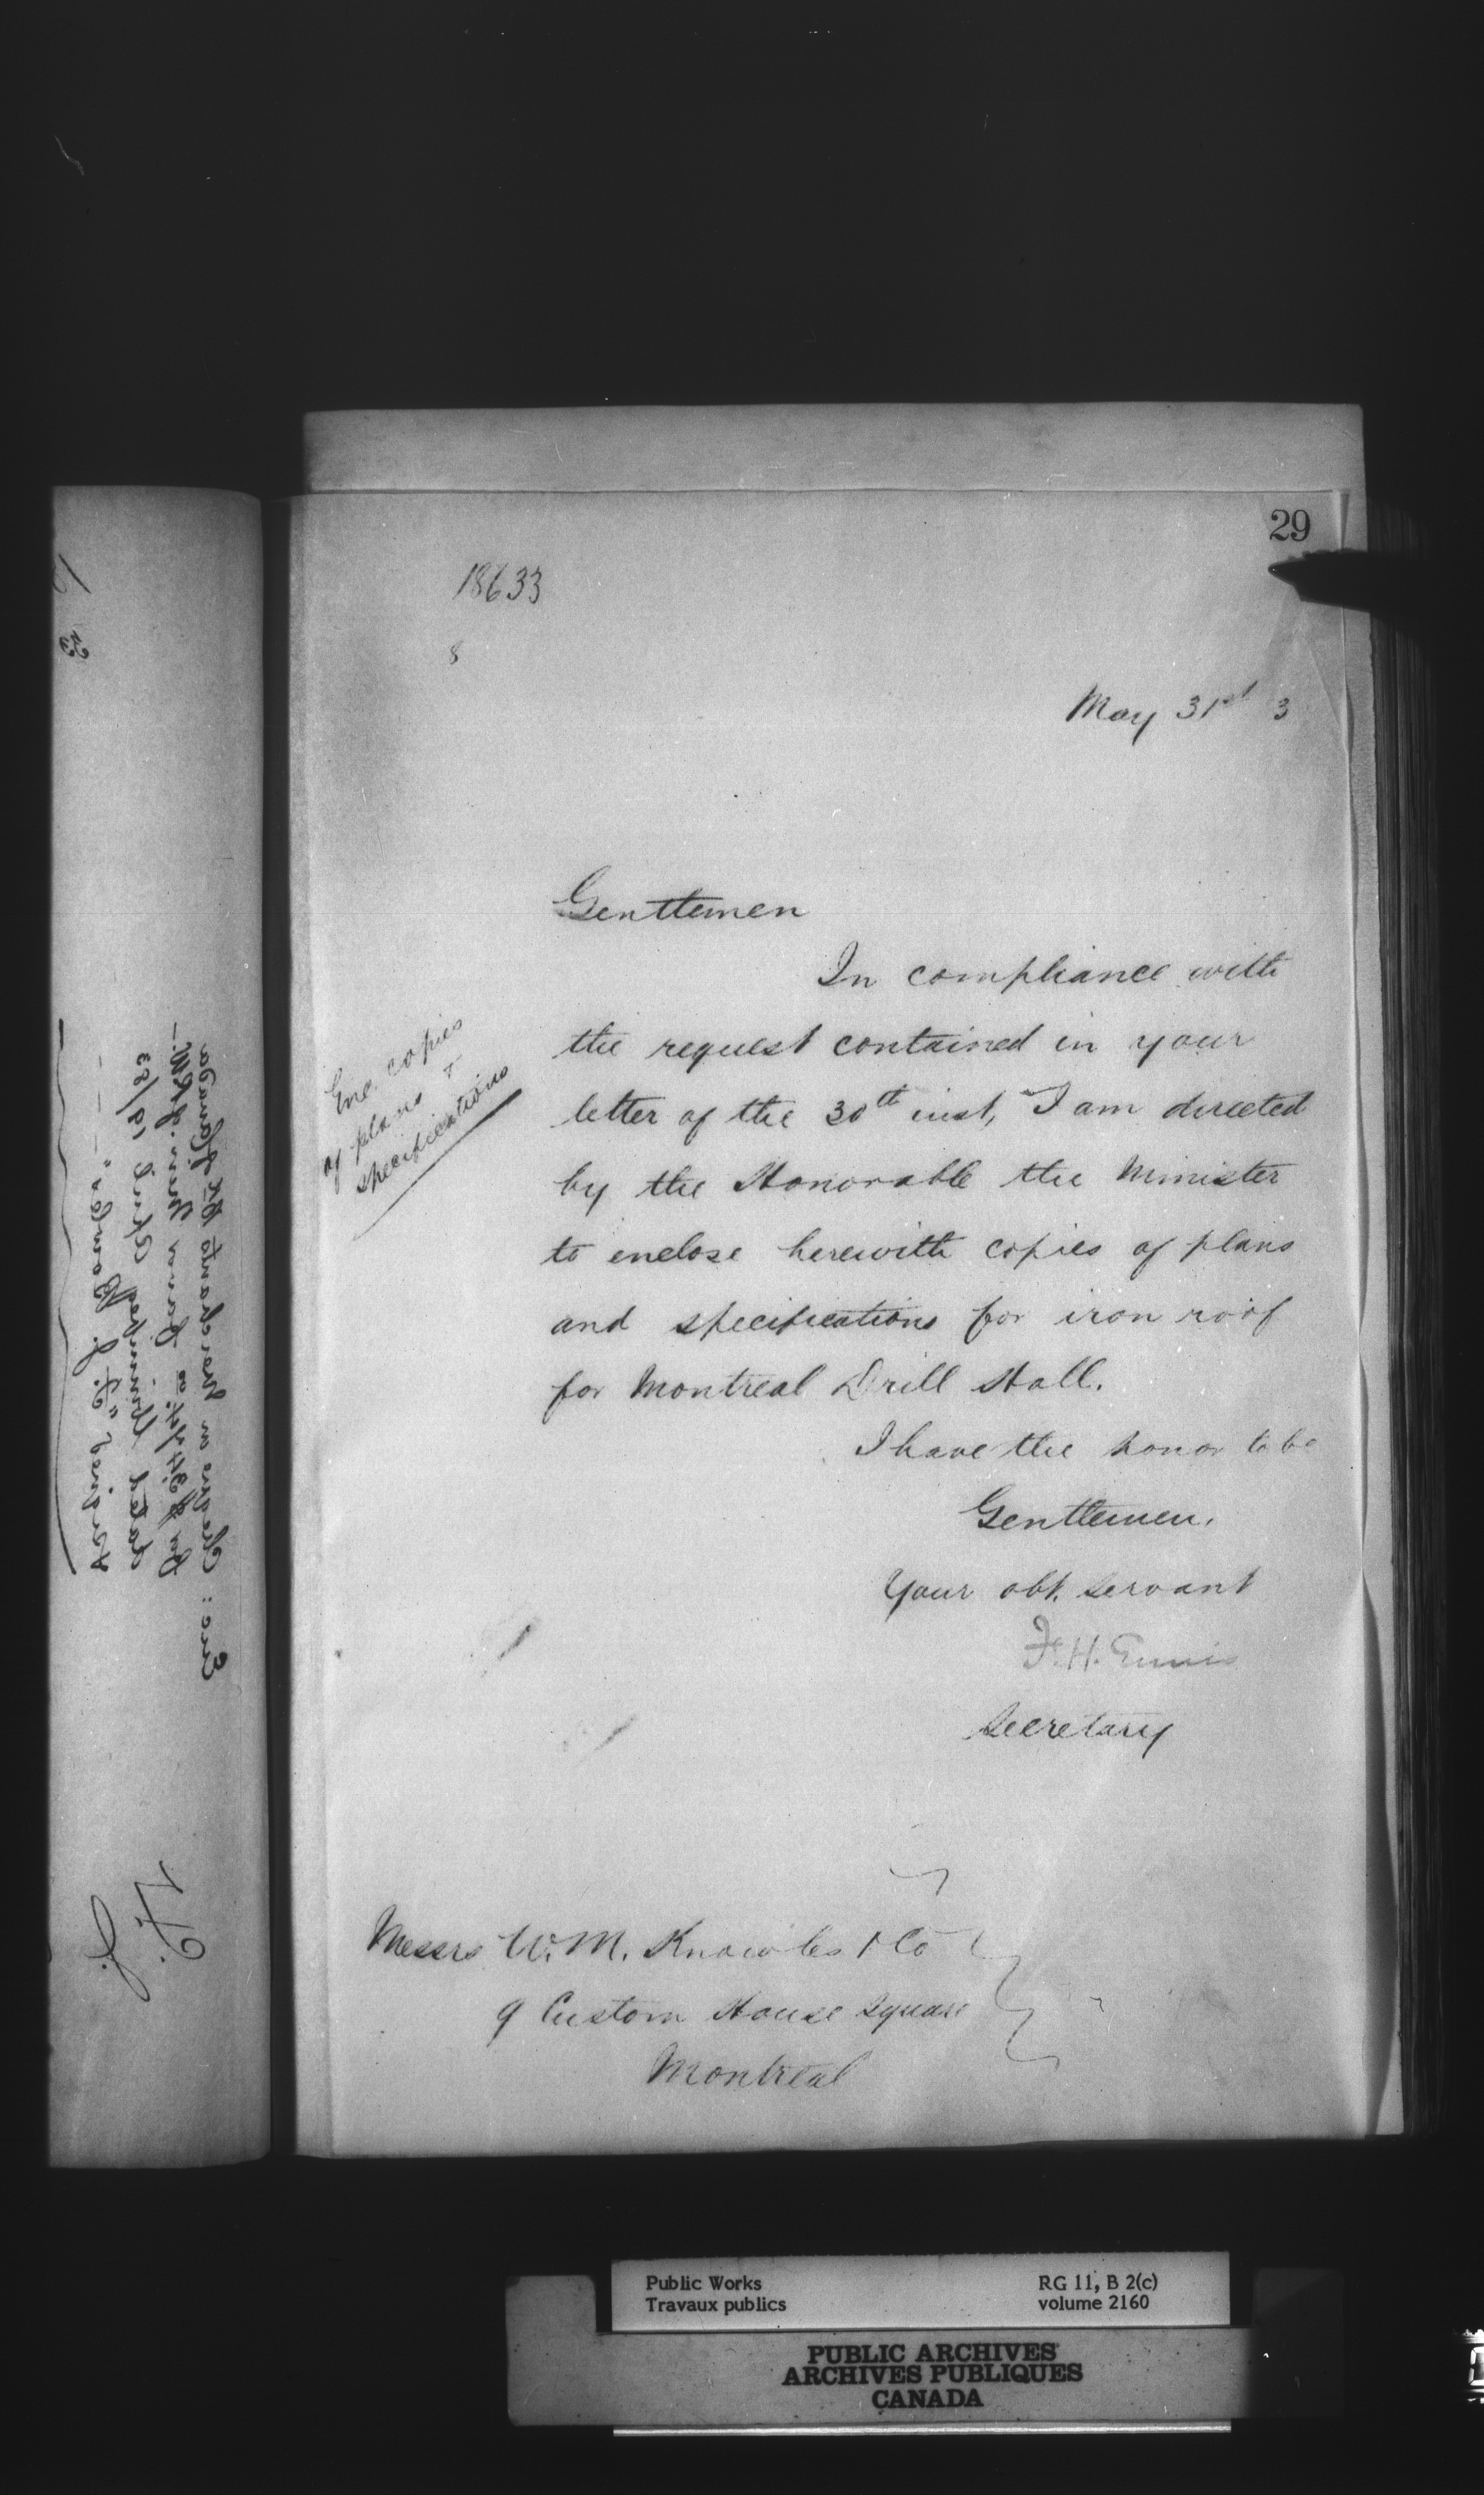 29
18633
8
May 31st 3
Gentlemen
In compliance with
the request contained in your
letter of the 30th inst, I am directed
by the Honorable the Minister
to enclose herewith copies of plans
and specifications for iron roof
for Montreal Drill Hall.
I have the honor to be
Gentlemen.
Your obt. servant
F. H. Ennis
Secretary
Enc. copies
of plans +
specifications
Messrs W. M. Knowles & Co
9 Custom House Square
Montreal
Enc: Cheque on Merchants Bk Canada
dated Winnipeg April 19/83
signed
Public Works
Travaux publics
RG 11, B 2(c)
volume 2160
PUBLIC ARCHIVES
ARCHIVES PUBLIQUES
CANADA